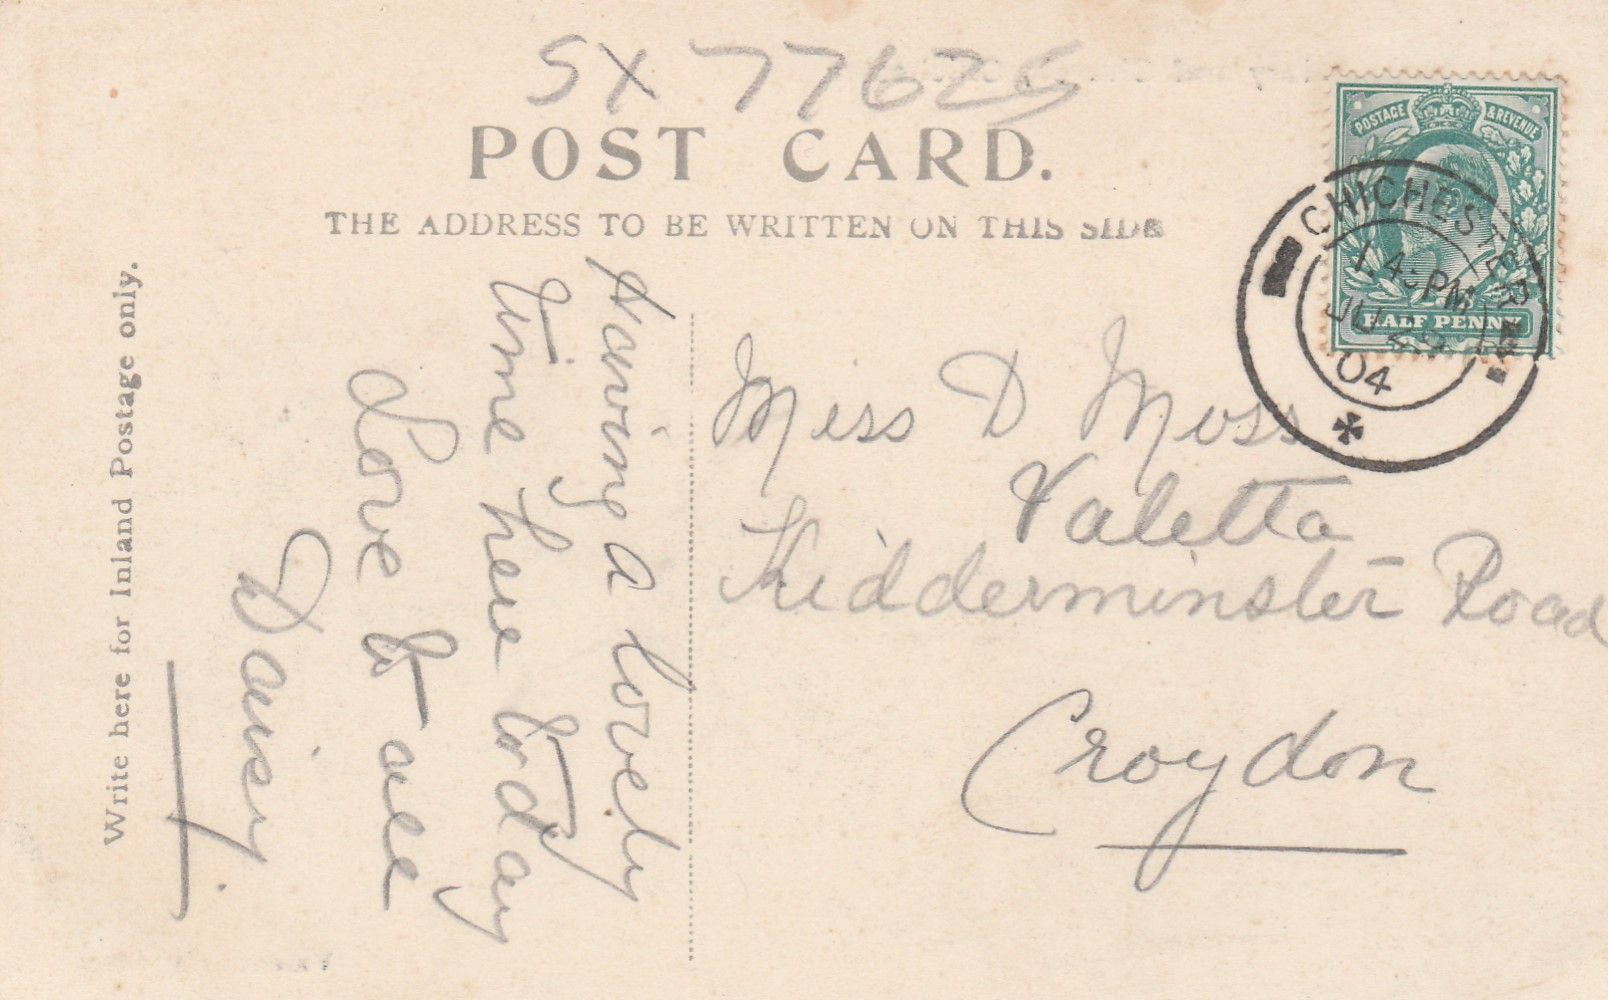 SX 77625
POST CARD.
THE ADDRESS TO BE WRITTEN ON THIS SIDE
POSTAGE & REVENUE
HALF PENNY
CHICHESTER
1.45PM
JU
04
Write here for Inland Postage only.
Having a lovely
time here today
Love to all
Daisy.
Miss D Moss
Valetta
Kidderminster Road
Croydon